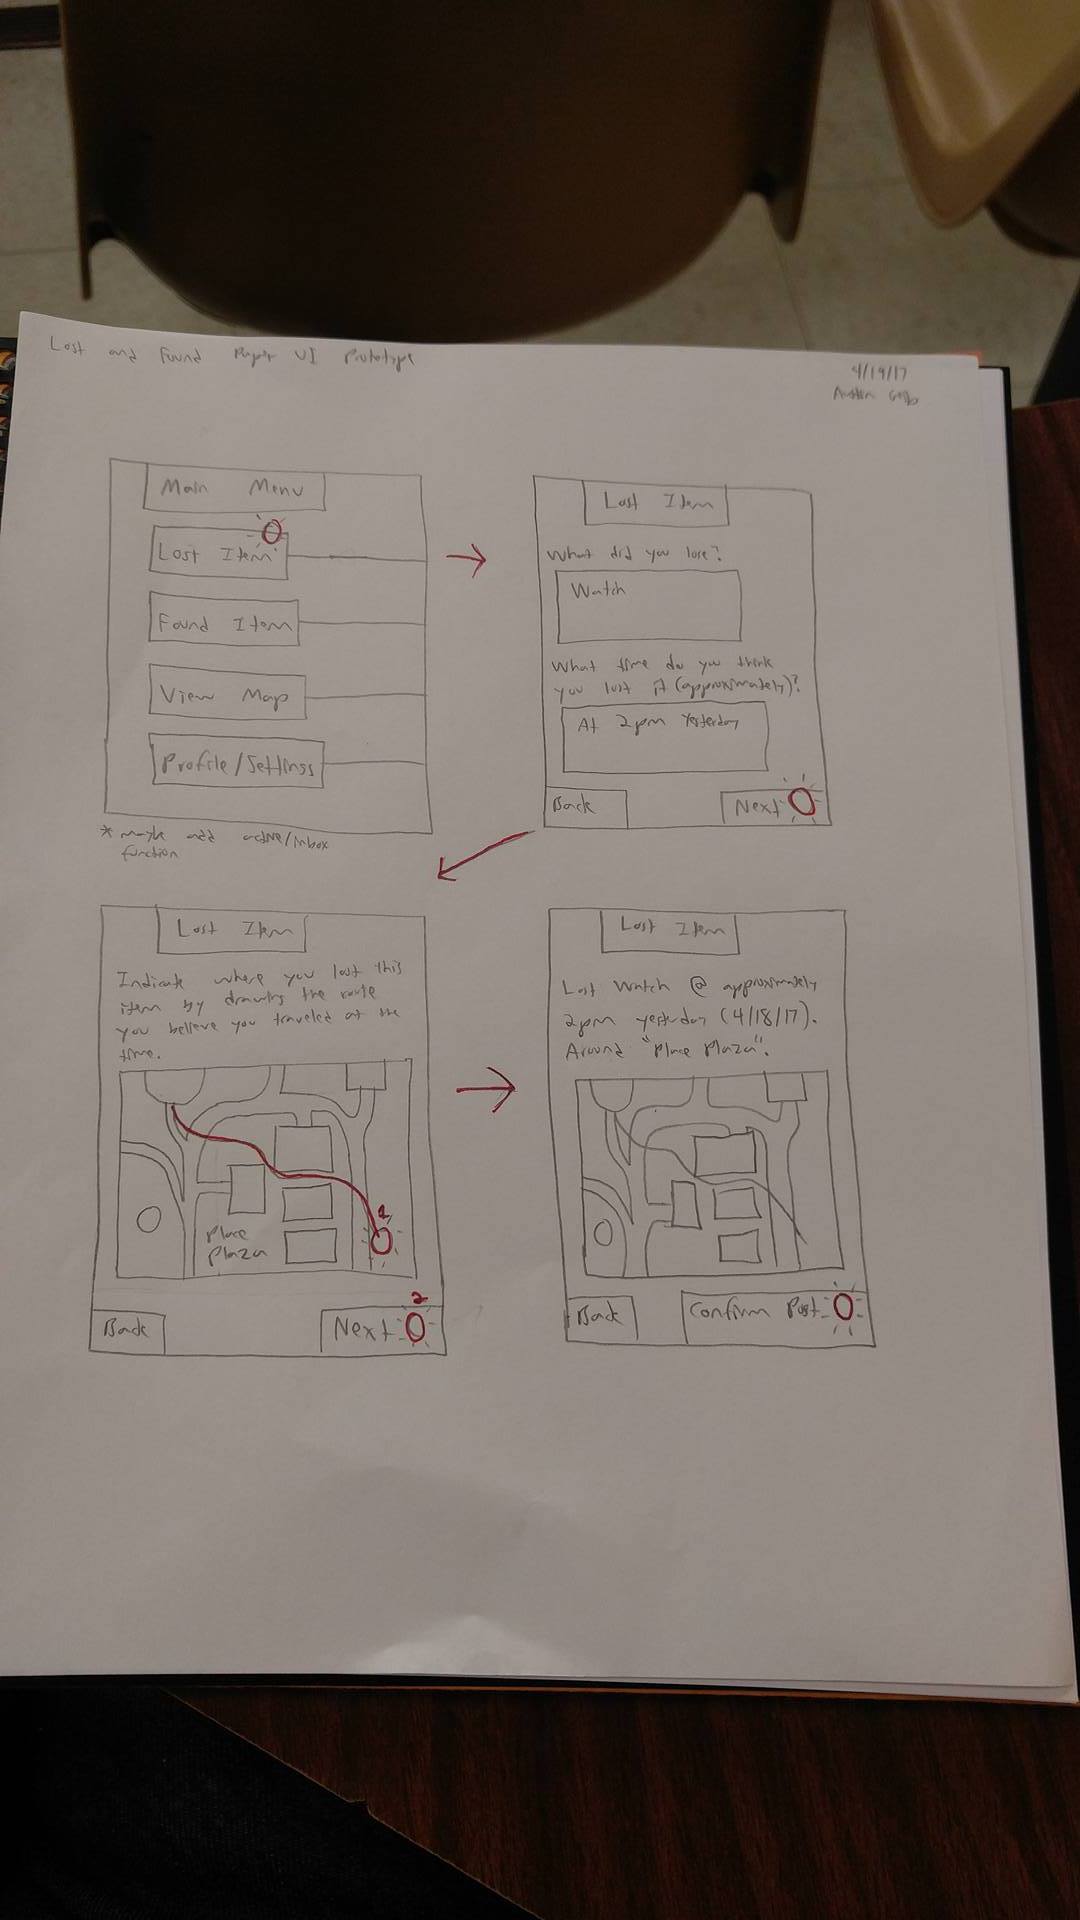 Lost and Found Paper UI Prototype
4/19/17
Austin
Main Menu
Lost Item
Found Item
View Map
Profile/Settings
* maybe add active/inbox
function
Lost Item
What did you lose?
Watch
What time do you think
you lost it (approximately)?
At 2pm Yesterday
Back
Next
Lost Item
Indicate where you lost this
item by drawing the route
you believe you traveled at the
time.
1
Place
Plaza
2
Back
Next
Lost Item
Lost Watch @ approximately
2pm yesterday (4/18/17).
Around "Place Plaza".
Back
Confirm Post